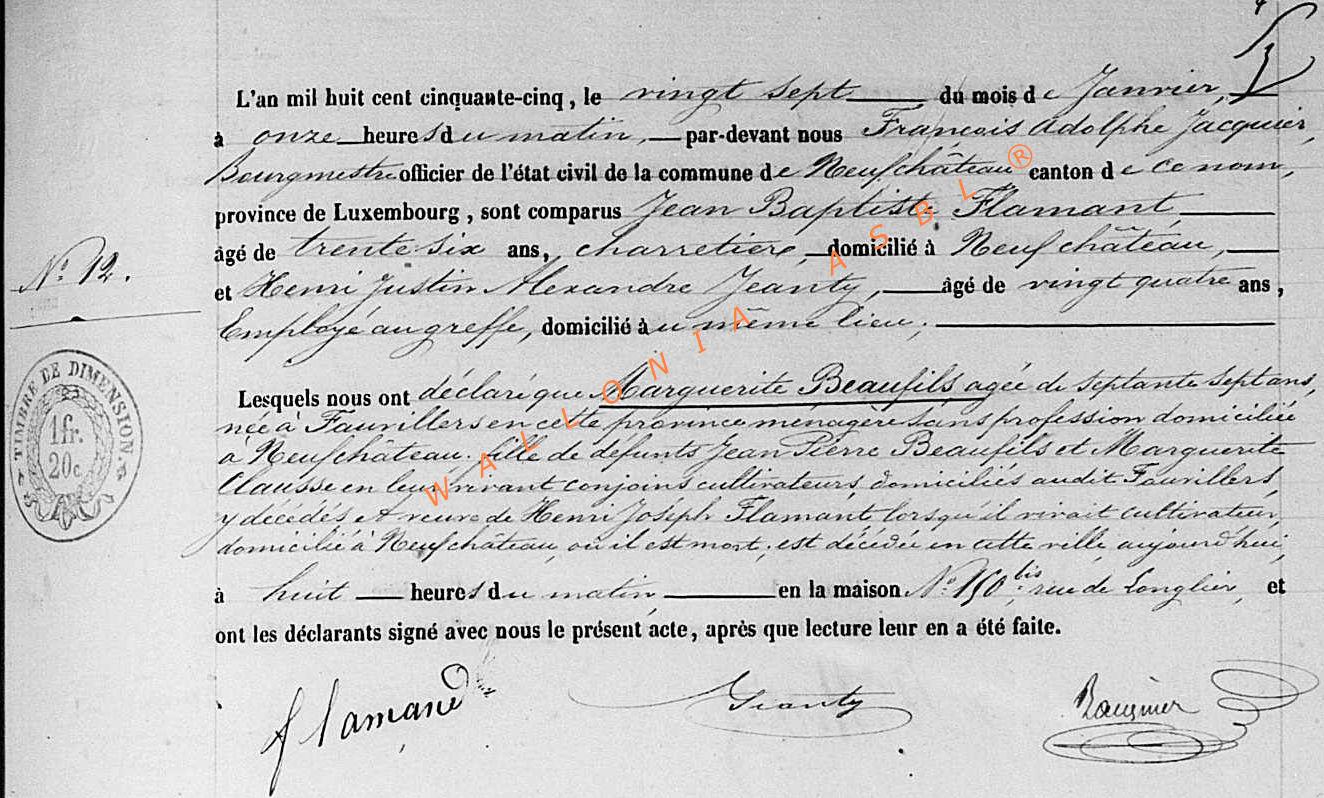 L'an mil huit cent cinquante-cinq, le vingt sept du mois de Janvier,
à onze heures du matin, par-devant nous François Adolphe Jacquier,
Bourgmestre officier de l'état civil de la commune de Neufchâteau canton de ce nom,
province de Luxembourg, sont comparus Jean Baptiste Flamant,
âgé de trente six ans, charretier, domicilié à Neufchâteau,
N° 12.
et Henri Justin Alexandre Jeanty, âgé de vingt quatre ans,
Employé au greffe, domicilié au même lieu;
TIMBRE DE DIMENSION.
1 fr.
20 c
Lesquels nous ont déclaré que Marguerite Beaufils agée de septante sept ans,
née à Fauvillers en cette province ménagère sans profession domiciliée
à Neufchâteau, fille de défunts Jean Pierre Beaufils et Marguerite
Clausse en leur vivant conjoins cultivateurs, domiciliés audit Fauvillers,
y décédés, et veuve de Henri Joseph Flamant, lorsqu'il vivait cultivateur,
domicilié à Neufchâteau, où il est mort; est décédée en cette ville, aujourd'hui,
à huit heures du matin, en la maison N° 150 bis, rue de Longlier, et
ont les déclarants signé avec nous le présent acte, après que lecture leur en a été faite.
flamand Jeanty Jacquier
WALLONIA ASBL ®